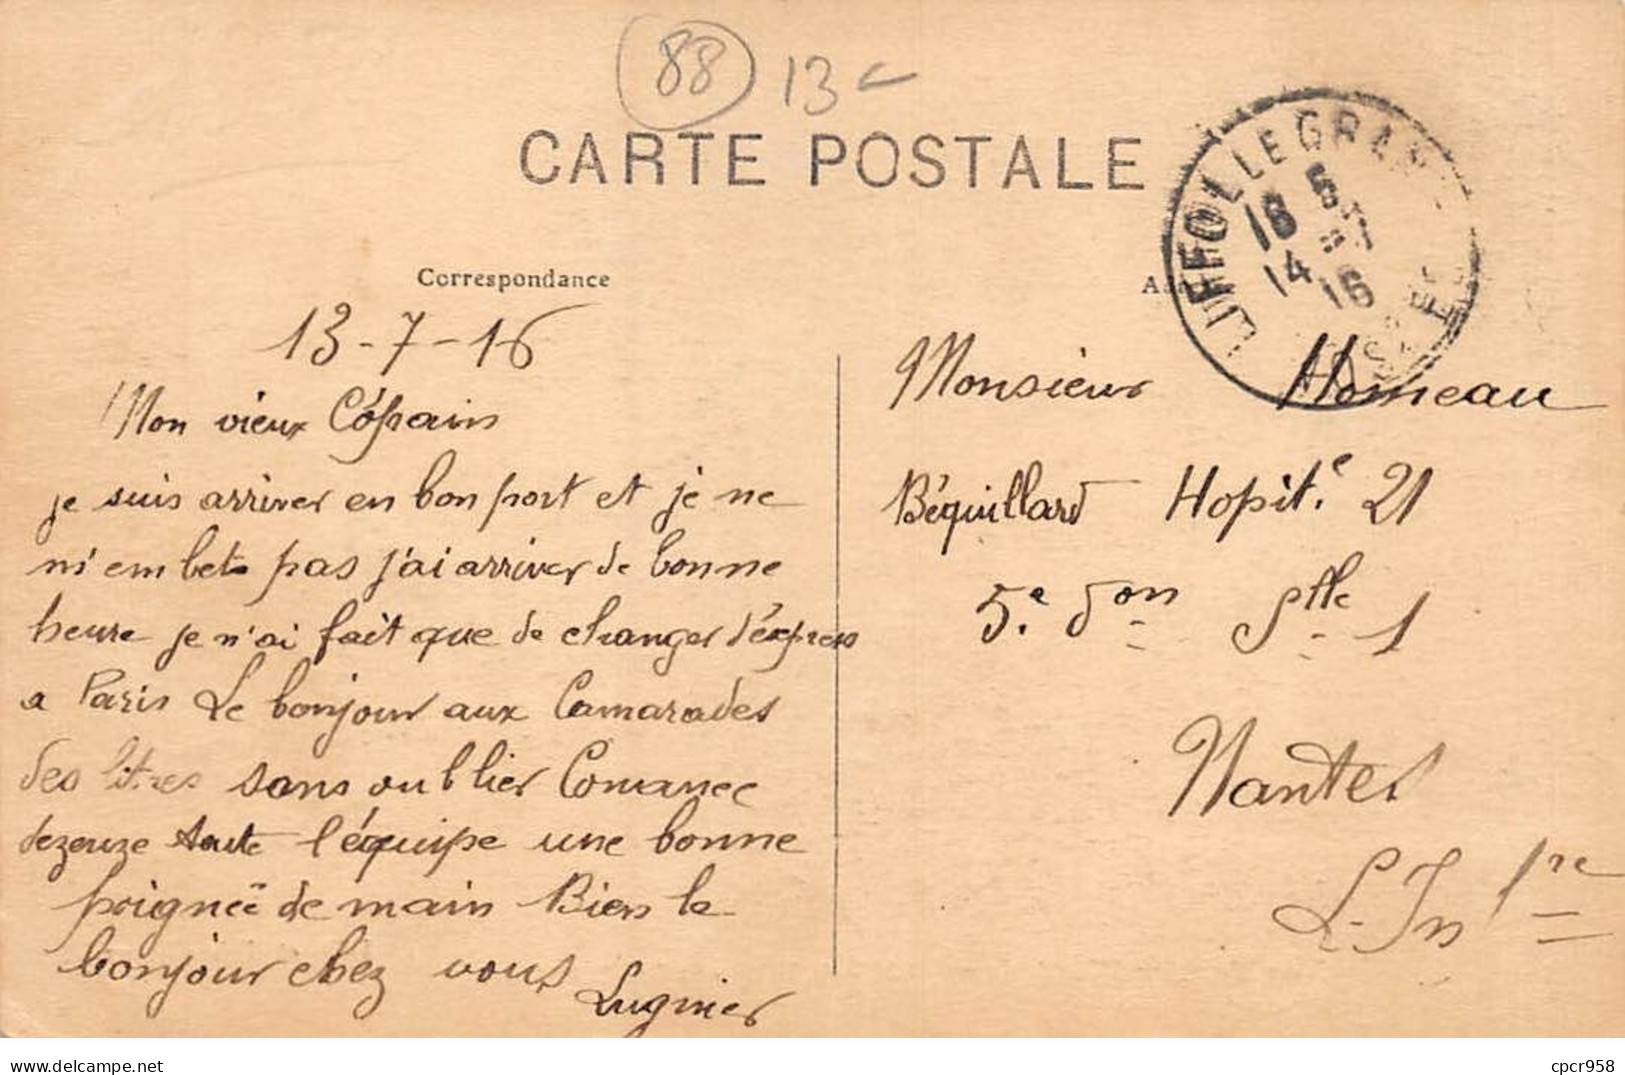 88 13
CARTE POSTALE
LIFFOL LE GRAND
18
14 16
VOSGES
Correspondance
13-7-16
Mon vieux Cópain
je suis arriver en bon port et je ne
m'embete pas j'ai arriver de bonne
heure je n'ai fait que de changer d'éxpress
a Paris Le bonjour aux Camarades
des litres sans oublier Comanec
dezeuze toute l'équipe une bonne
poignée de main Bien le
bonjour chez vous
Lugnier
Monsieur Homeau
Béquillard Hopit.e 21
5.e don Slle 1
Nantes
L. Inf 1re
Delcampe.net
cpcr958